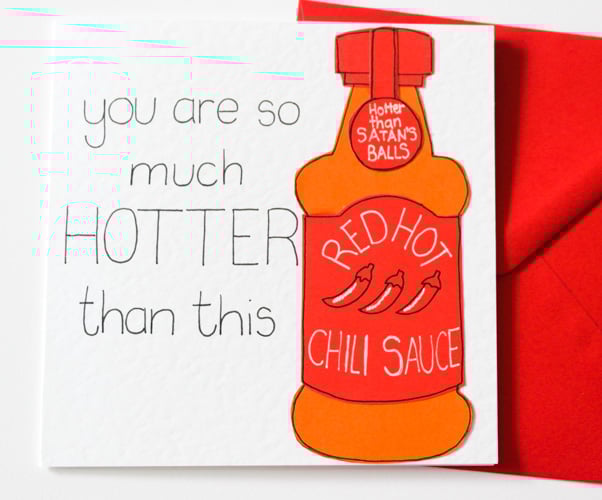 you are so
much
HOTTER
than this
Hotter
than
SATAN'S
BALLS
RED HOT
CHILI SAUCE